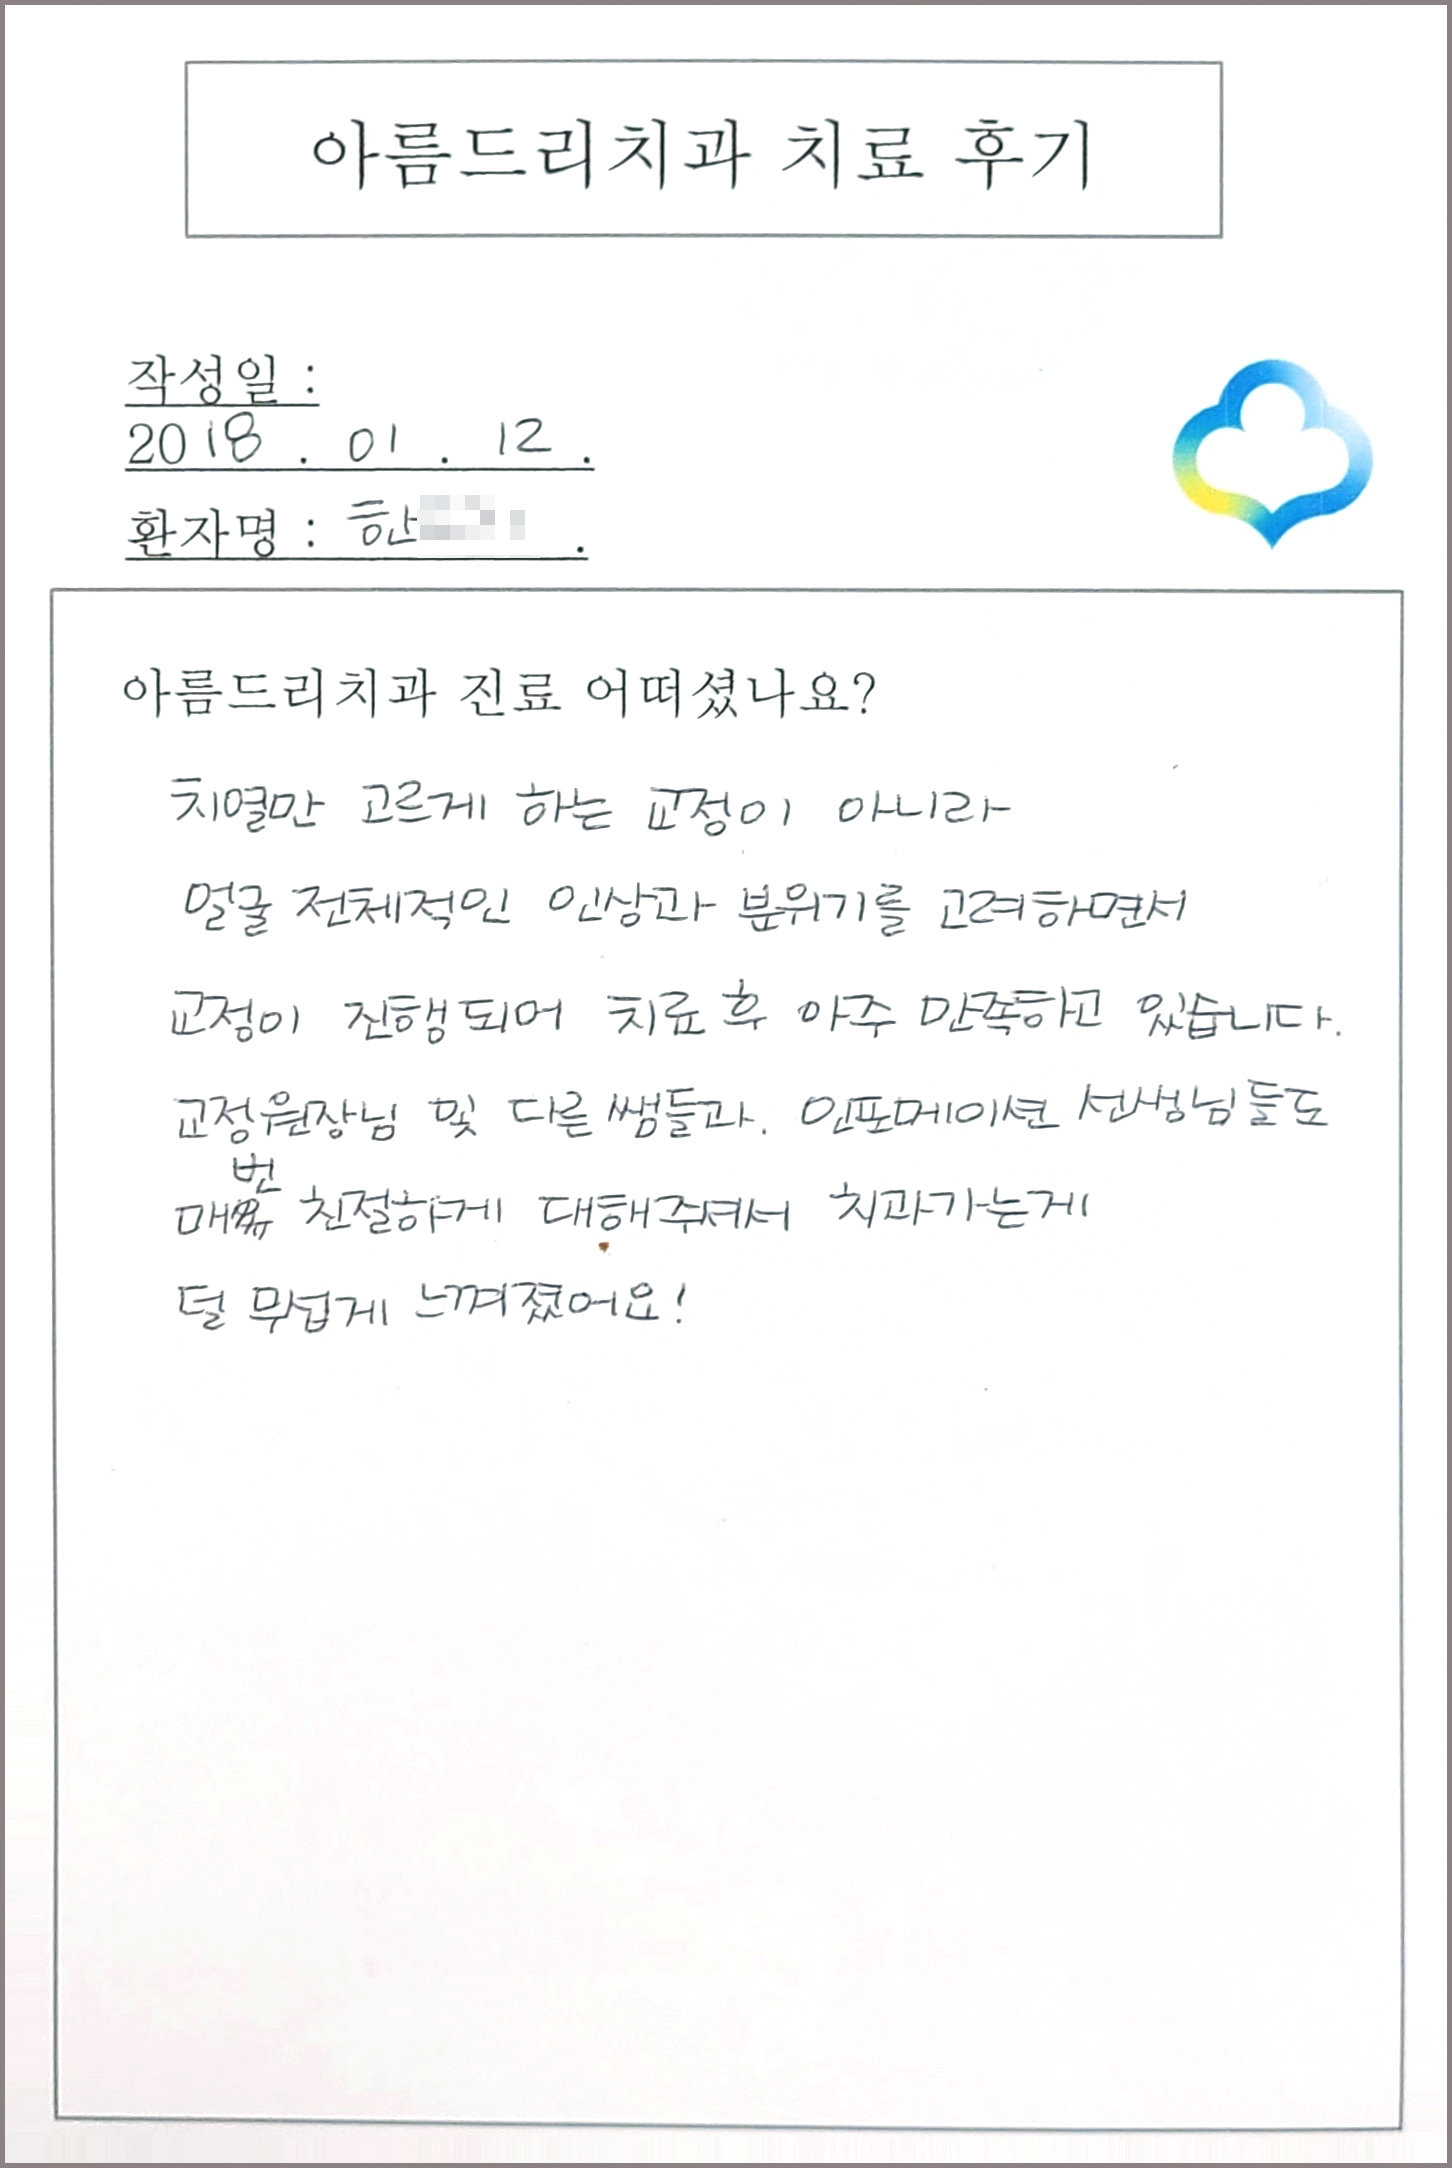 아름드리치과 치료 후기
작성일 :
2018 . 01 . 12 .
환자명 : 한 .
아름드리치과 진료 어떠셨나요?
치열만 고르게 하는 교정이 아니라
얼굴 전체적인 인상과 분위기를 고려하면서
교정이 진행되어 치료 후 아주 만족하고 있습니다.
교정원장님 및 다른 쌤들과. 인포메이션 선생님들도
매번 친절하게 대해주셔서 치과가는게
덜 무섭게 느껴졌어요!